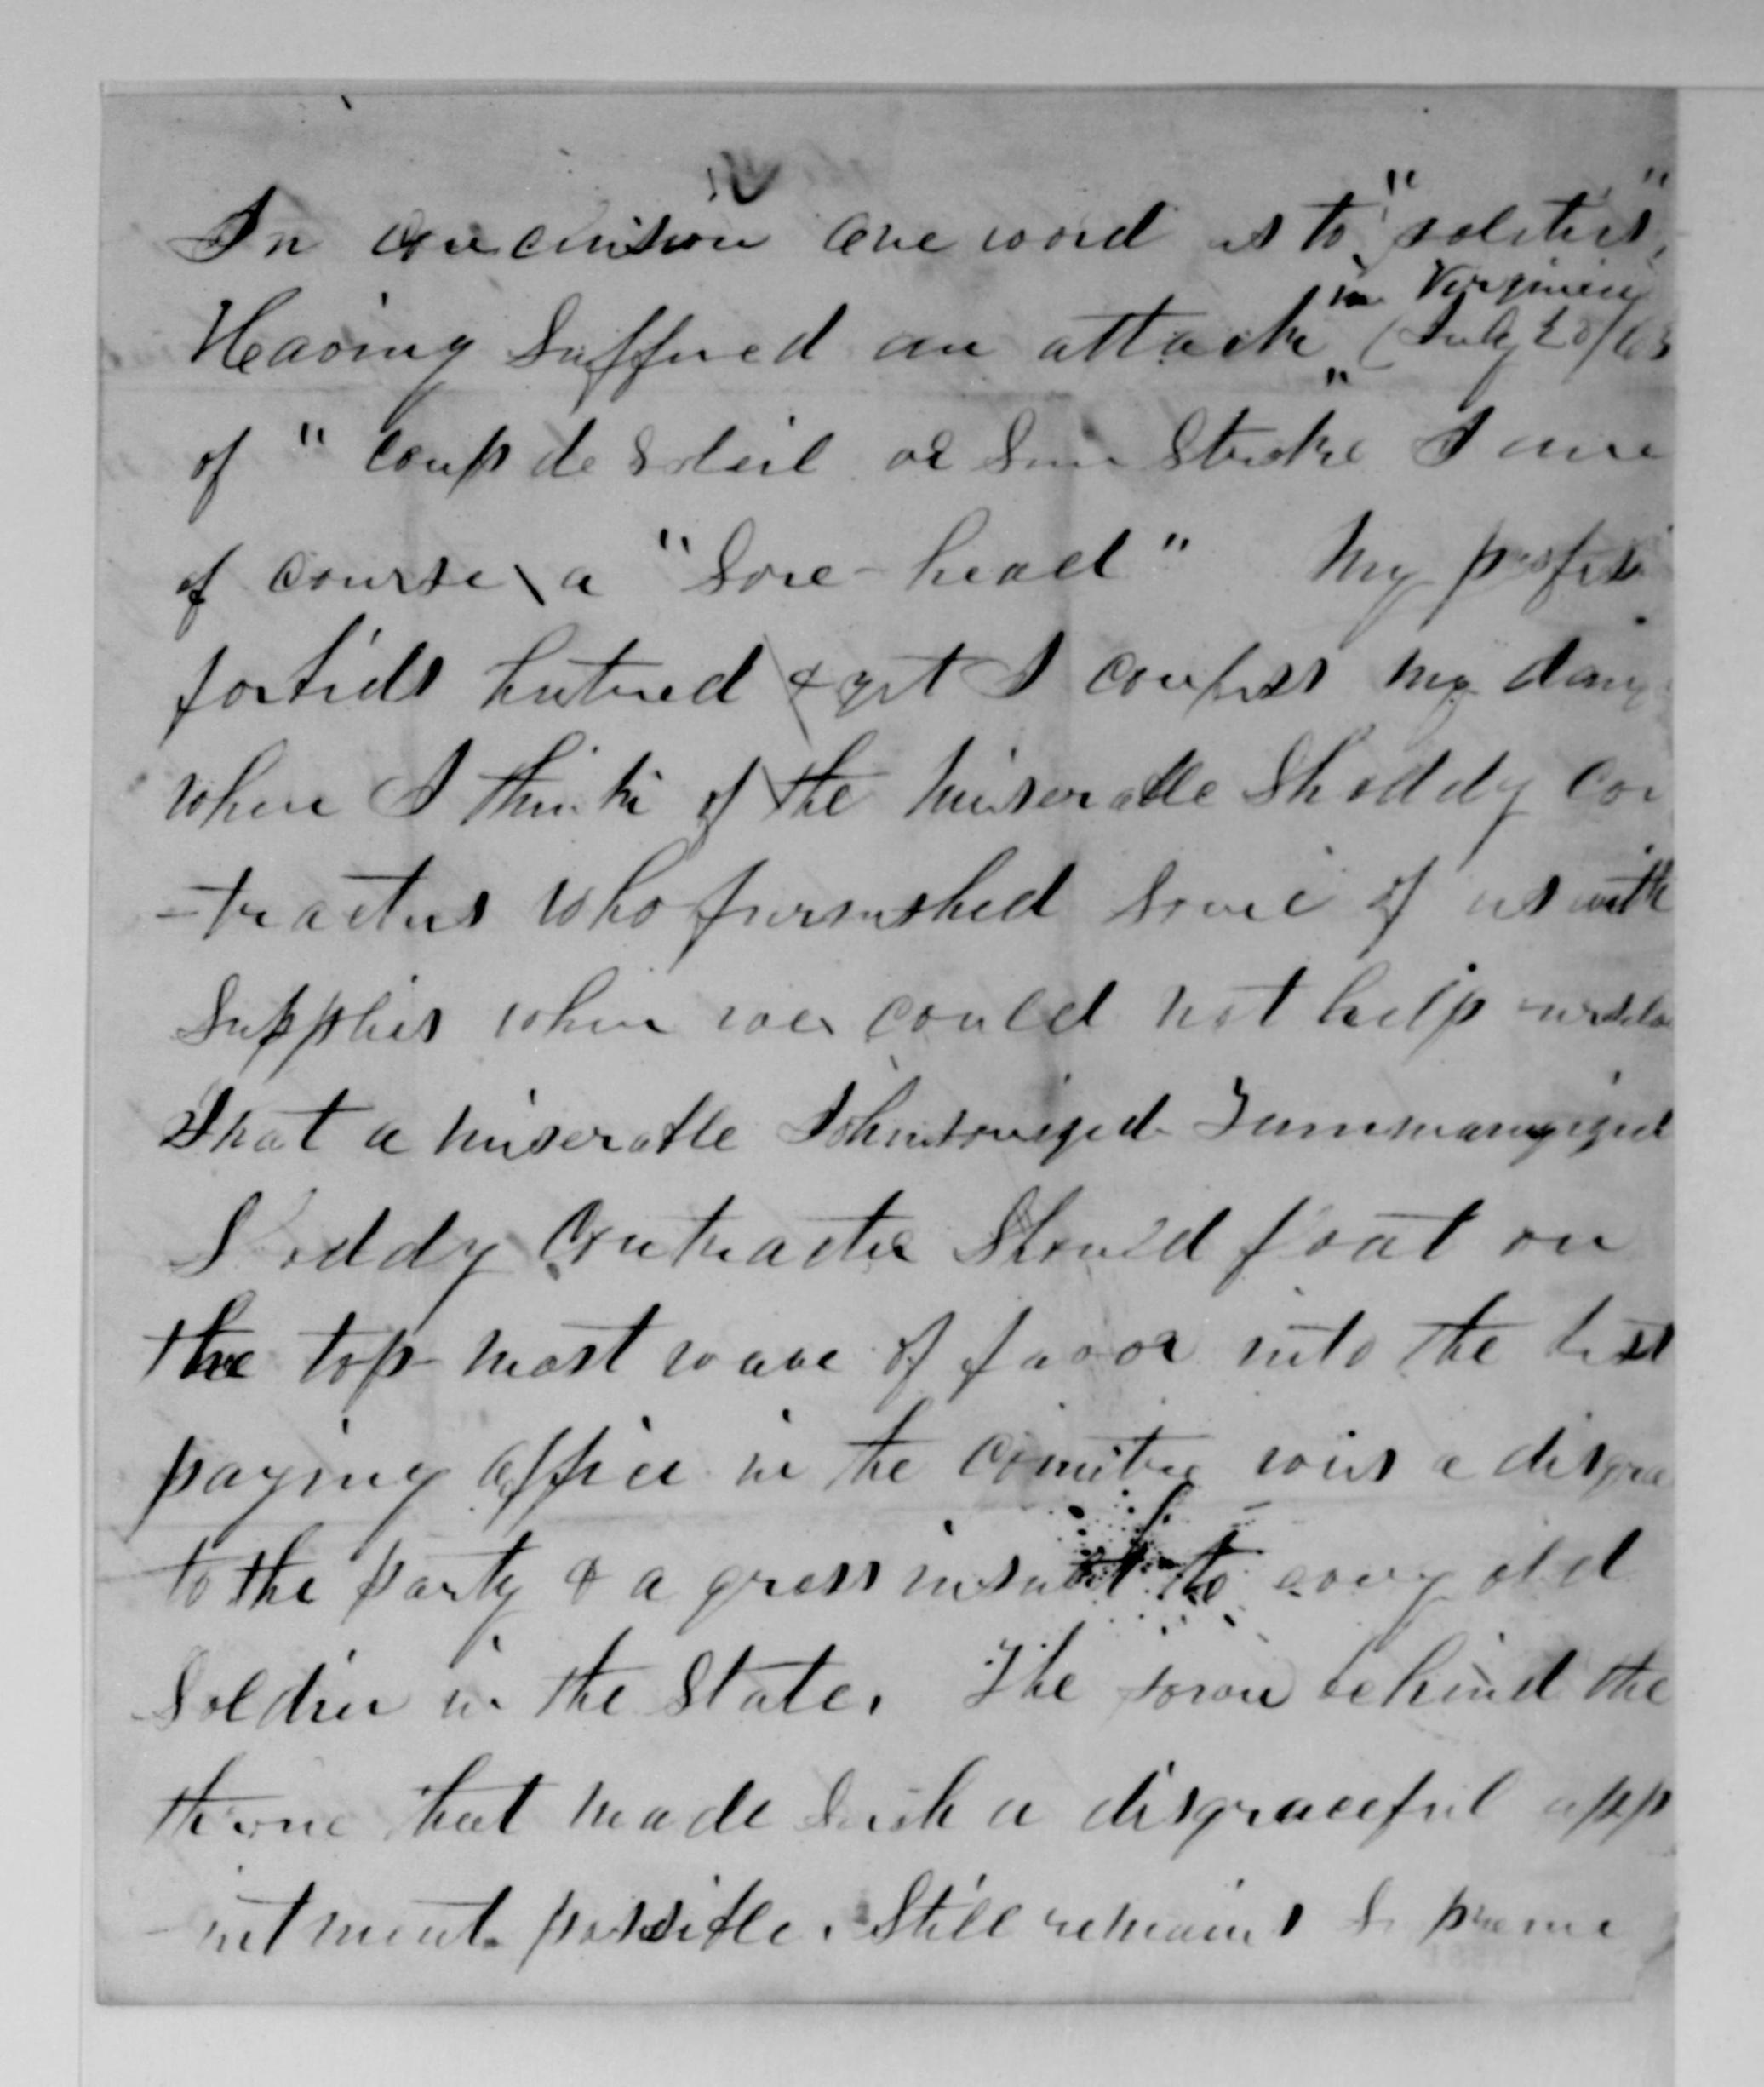 In conclusion one word as to "politics"
in Virginia
Having suffered an attack (July 20/63
of "coup de soleil or Sun Stroke" I am
of course a "Sore-head" My profess
forbids hatred & yet I confess my dang
when I think of the miserable Shoddy con
-tractors who furnished some of us with
supplies when we could not help ourselves
That a miserable Johnsonized Tammanyized
Shoddy Contractor should float on
the top-most wave of favor into the best
paying office in the country was a disgra
to the party & a gross insult to every old
Soldier in the State. The power behind the
throne that made such a disgraceful app
-intment possible. Still remains Supreme